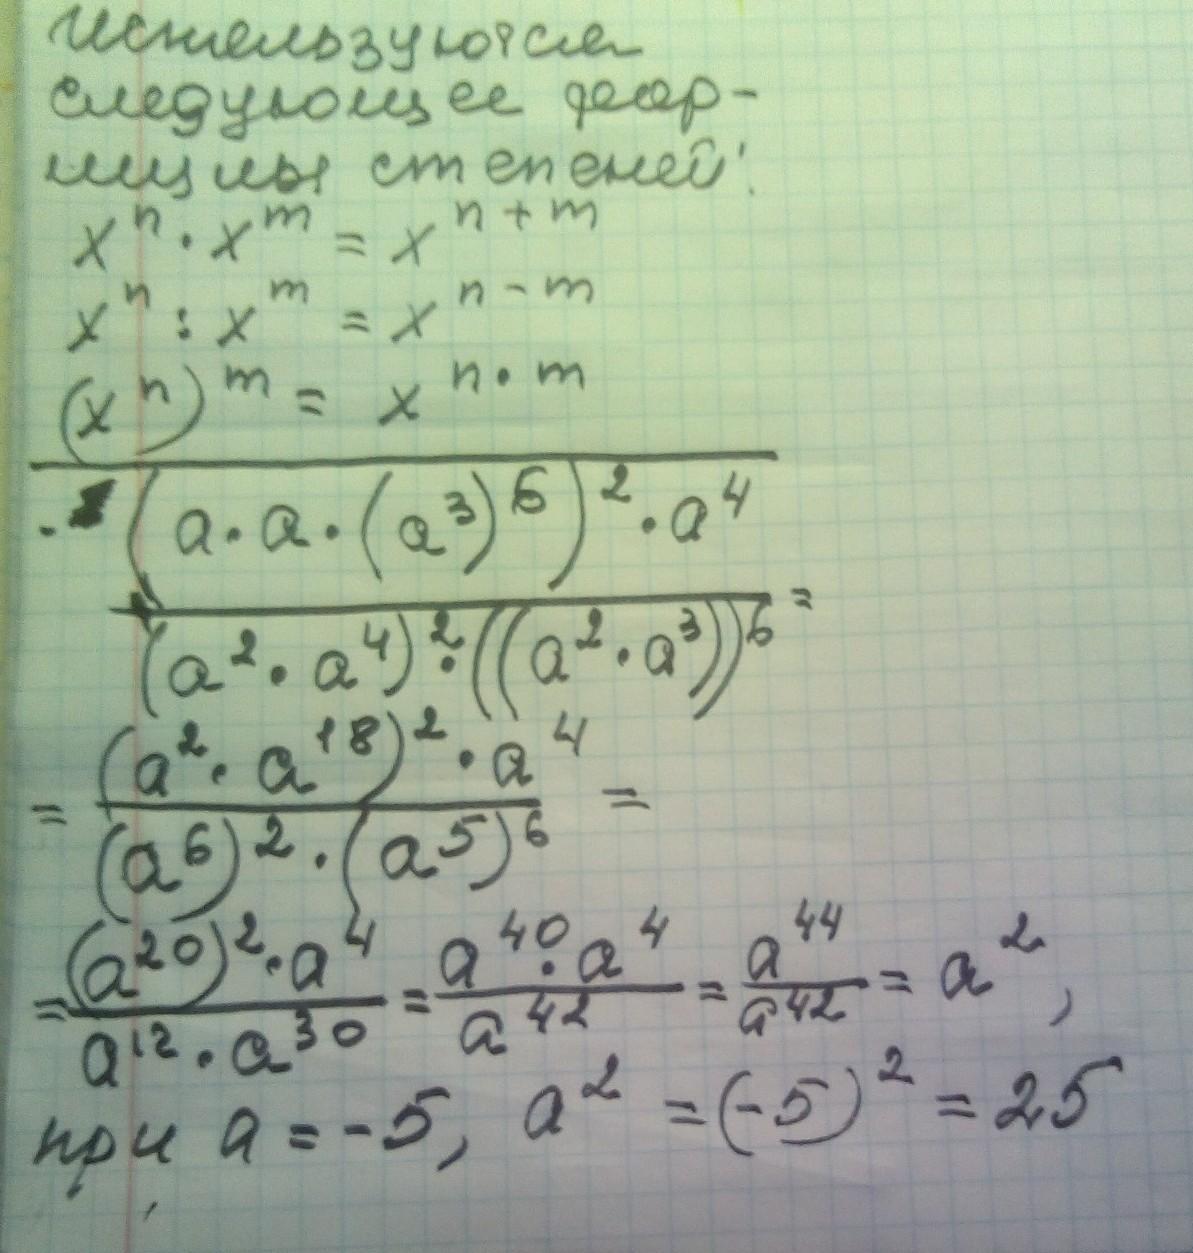 используются
следующее фор-
мулы степеней:
xⁿ · xᵐ = xⁿ⁺ᵐ
xⁿ : xᵐ = xⁿ⁻ᵐ
(xⁿ)ᵐ = x^(n·m)
(a·a·(a³)⁶)²·a⁴
(a²·a⁴)²·((a²·a³))⁶ =
= (a²·a¹⁸)²·a⁴ =
(a⁶)²·(a⁵)⁶
= (a²⁰)²·a⁴ / a¹²·a³⁰ = a⁴⁰·a⁴ / a⁴² = a⁴⁴ / a⁴² = a²,
при a = -5, a² = (-5)² = 25